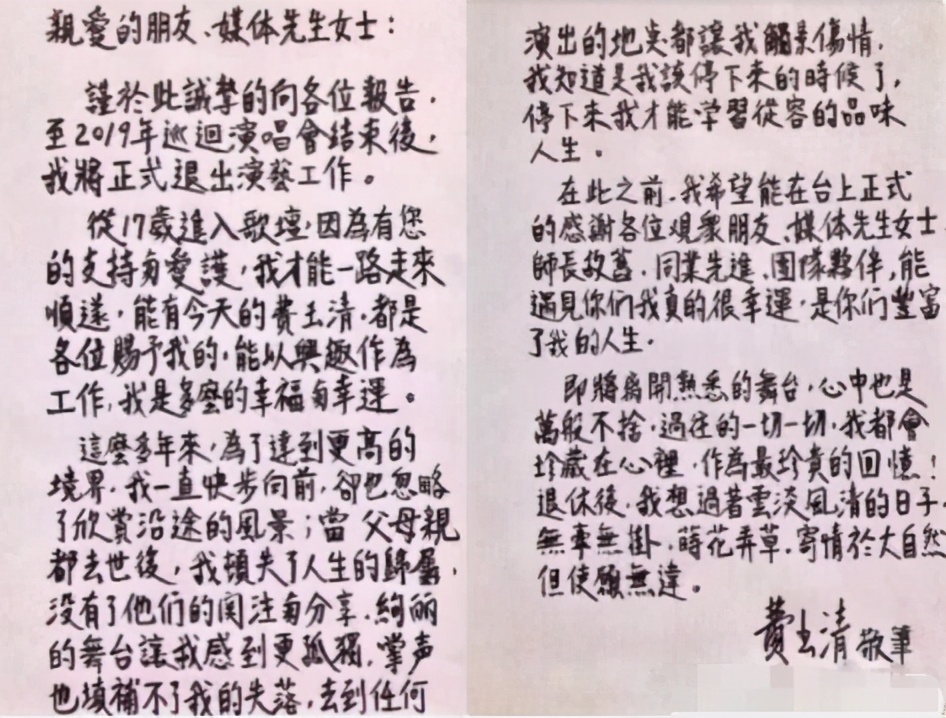 親愛的朋友、媒体先生女士：
謹於此誠摯的向各位報告，
至2019年巡迴演唱會結束後，
我將正式退出演藝工作。
從17歲進入歌壇，因為有您
的支持与愛護，我才能一路走來
順遂，能有今天的費玉清，都是
各位賜予我的，能以興趣作為
工作，我是多麼的幸福与幸運。
這麼多年來，為了達到更高的
境界，我一直快步向前，卻也忽略
了欣賞沿途的風景；當父母親
都去世後，我頓失了人生的歸屬，
沒有了他們的関注与分享，絢麗
的舞台讓我感到更孤獨，掌声
也填補不了我的失落，去到任何
演出的地点都讓我觸景傷情，
我知道是我該停下來的時候了，
停下來我才能学習從容的品味
人生。
在此之前，我希望能在台上正式
的感謝各位观衆朋友、媒体先生女士
師長故舊、同業先進、團隊夥伴，能
遇見你们我真的很幸運，是你们豐富
了我的人生。
即將离開熟悉的舞台，心中也是
萬般不捨，過往的一切一切，我都會
珍藏在心裡，作為最珍貴的回憶！
退休後，我想過著雲淡風清的日子，
無牽無掛，蒔花弄草，寄情於大自然
但使願無違。
費玉清 敬筆